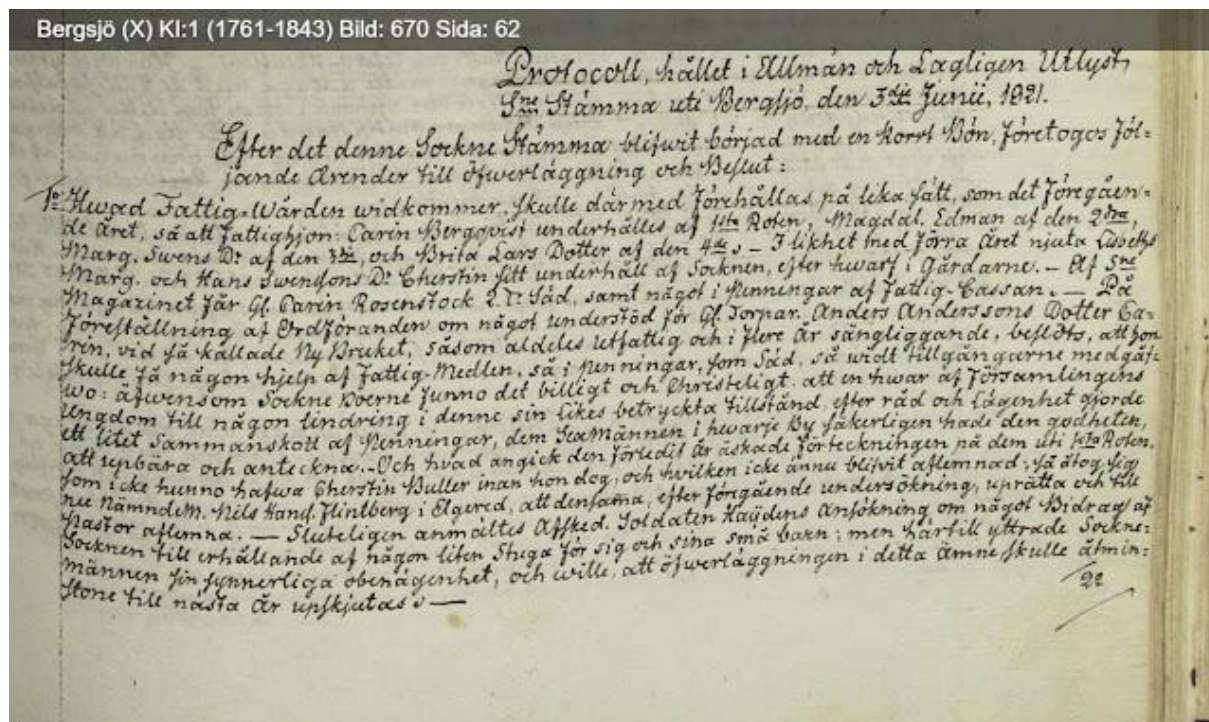 Bergsjö (X) KI:1 (1761-1843) Bild: 670 Sida: 62
Protocoll, hållet i Allmän och Lagligen Utlyst,
Sne Stämma uti Bergsjö, den 3dje Junii, 1821.
Efter det denne Sockne Stämma blifwit börjad med en korrt Bön, företogos föl=
jande Ärender till öfwerläggning och Beslut:
1o Hwad Fattig-Wården widkommer, skulle därmed förehållas på lika sätt, som det föregåen=
de Året, så att fattighjon: Carin Bergqvist underhålles af 1sta Roten, Magdal. Edman af den 2dra,
Marg. Swens Dr af den 3die, och Brita Lars Dotter af den 4de. - I likhet med förra Året njuta Lisbeths
Marg. och Hans Swensons Dr Cherstin sitt underhåll af Socknen, efter hwarf i Gårdarne. - Af Sne
Magazinet får Gl. Carin Rosenstock 2 Tr Säd, samt något i Penningar af Fattig-Cassan. - På
Föreställning af Ordföranden om något understöd för Gl. Torpar. Anders Anderssons Dotter Ca=
rin, vid så kallade Ny Bruket, såsom aldeles utfattig och i flere År sängliggande, beslöts, att hon
skulle få någon hjelp af Fattig-Medlen, så i Penningar, som Säd, så widt tillgångarne medgåf=
wo: äfwensom Sockne Boerne funno det billigt och Christeligt, att en hwar af Församlingens
Ungdom till någon lindring i denne sin likes betryckta tillstånd, efter råd och Lägenhet gjorde
ett litet Sammanskott af Penningar, dem Sexmännen i hwarje By säkerligen hade den godheten,
att upbära och anteckna. - Och hvad angick den förledit År äskade förteckningen på dem uti Roten,
som icke hunno hafwa Cherstin Buller inan hon dog, och hvilken icke ännu blifvit aflemnad; så åtog sig
nu Nämndem. Nils Hans. Flintberg i Elgered, att densama, efter föregående undersökning, uprätta och till
Pastor aflemna. - Sluteligen anmältes Afsked. Soldaten Haÿdens Ansökning om något Bidrag af
Socknen till erhållande af någon liten Stuga för sig och sina små barn; men härtill yttrade Sockne=
männen sin synnerliga obenägenhet, och wille, att öfwerläggningen i detta ämne skulle åtmin=
stone till nästa År upskjutas. -
22